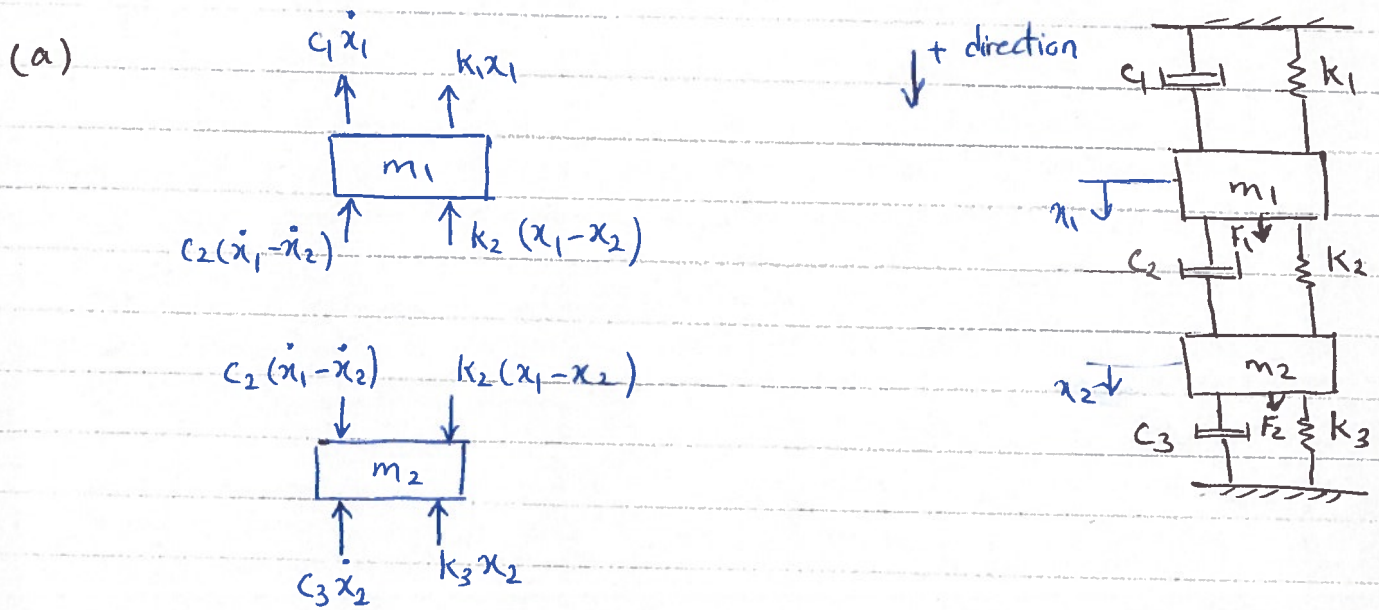 (a)
c₁ẋ₁
k₁x₁
m₁
c₂(ẋ₁-ẋ₂)
k₂(x₁-x₂)
c₂(ẋ₁-ẋ₂)
k₂(x₁-x₂)
m₂
c₃ẋ₂
k₃x₂
+ direction
c₁
k₁
m₁
x₁
F₁
c₂
k₂
m₂
x₂
F₂
c₃
k₃